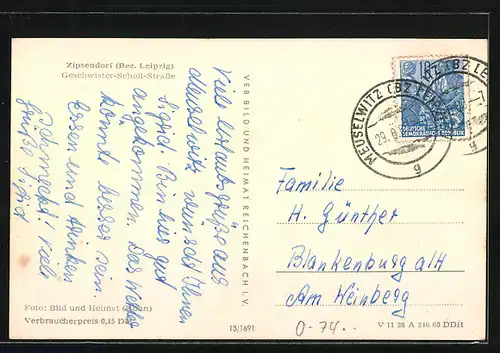 Zipsendorf (Bez. Leipzig)
Geschwister-Scholl-Straße
Viele Urlaubsgrüße aus
Meuselwitz wünscht Ihnen
Sigid. Bin hier gut
angekommen. Das Wetter
könnte besser sein.
Essen und trinken
schmeckt. Viele
Grüße Sigid
Foto: Bild und Heimat
Verbraucherpreis 0,15 DM
VEB BILD UND HEIMAT REICHENBACH I. V.
13/1691
10
DEUTSCHE
DEMOKRATISCHE REPUBLIK
MEUSELWITZ (BZ LEIPZIG)
29.
g
Familie
H. Günther
Blankenburg a/H
Am Weinberg
0-74.-
V 11 28 A 216 60 DDR